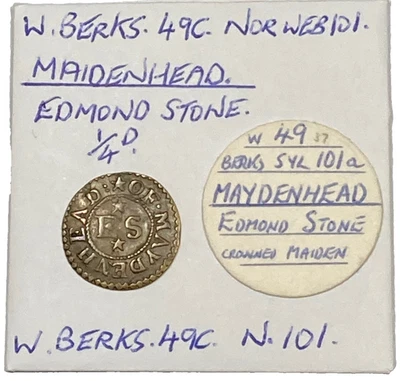 W. BERKS. 49C. NORWEB 101.
MAIDENHEAD.
EDMOND STONE.
1/4 D.
OF · MAYDENHEAD :
ES
W 49 37
BERKS SYL 101a
MAYDENHEAD
EDMOND STONE
CROWNED MAIDEN
W. BERKS. 49C. N. 101.